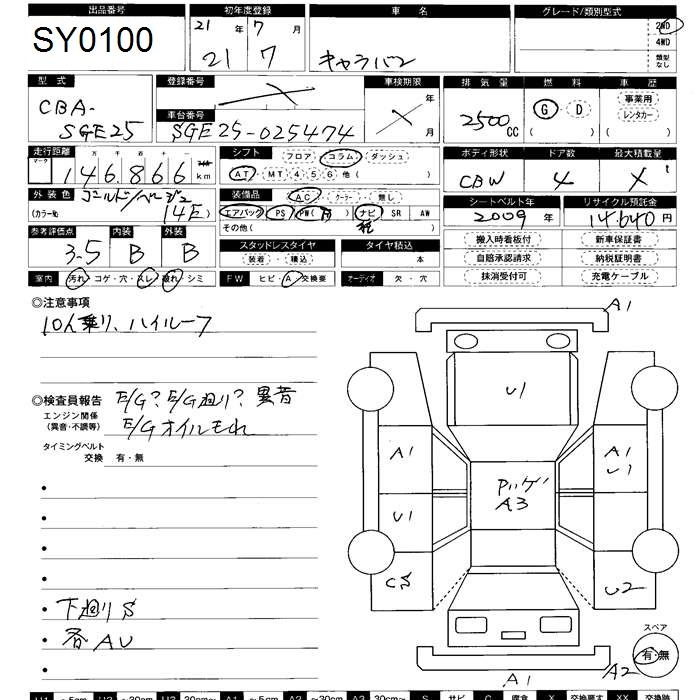 出品番号 初年度登録 車 名 グレード/類別型式
SY0100 21 年 7 月 21 7 キャラバン 2WD
4WD
類型なし
型 式 登録番号 車検期限 排 気 量 燃 料 車 歴
CBA-SGE25 × 年 月 2500 CC G・D ( ) 事業用 レンタカー ( )
車台番号 SGE25-025474
走行距離 シフト フロア コラム ダッシュ ボディ形状 ドア数 最大積載量
マーク 十 万 千 百 十 一
146,866 km AT・MT 4 5 6 他 ( ) CBW 4 ×
外 装 色 装備品 AC クーラー 無し シートベルト年 リサイクル預託金
(カラー№) ゴールド/ベージュ 14E) エアバック PS PW ナビ SR AW 2009 年 14.640 円
その他 (
参考評価点 内装 外装 スタッドレスタイヤ タイヤ積込 搬入時看板付 新車保証書
3.5 B B 装着 ・ 積込 本 自賠承認請求 納税証明書
室 内 汚れ・コゲ・穴・スレ・破れ・シミ FW ヒビ・A・交換要 オーディオ 欠 ・ 穴 抹消受付可 充電ケーブル
◎注意事項
10人乗り、ハイルーフ
◎検査員報告 E/G? E/G廻り? 異音
エンジン関係
(異音・不調等) E/Gオイルもれ
タイミングベルト
交換 有・無
・下廻りS
・各AU
A1
U1
A1 A1 U1
A3
U1
CS U2
スペア
有・無
A1 A2